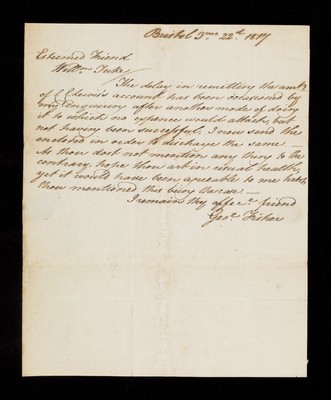 Bristol 3mo 22d 1817
Esteemed Friend
Willm Tuke
The delay in remitting the amt
of C C Lewis's account has been occasioned by
my enquiring after another mode of doing
it to which no expence would attach, but
not having been successful, I now send the
enclosed in order to discharge the same —
As thou dost not mention any thing to the
contrary, hope thou art in usual health,
yet it would have been agreeable to me had
thou mentioned this being the case —
I remain thy affect friend
Geo Fisher